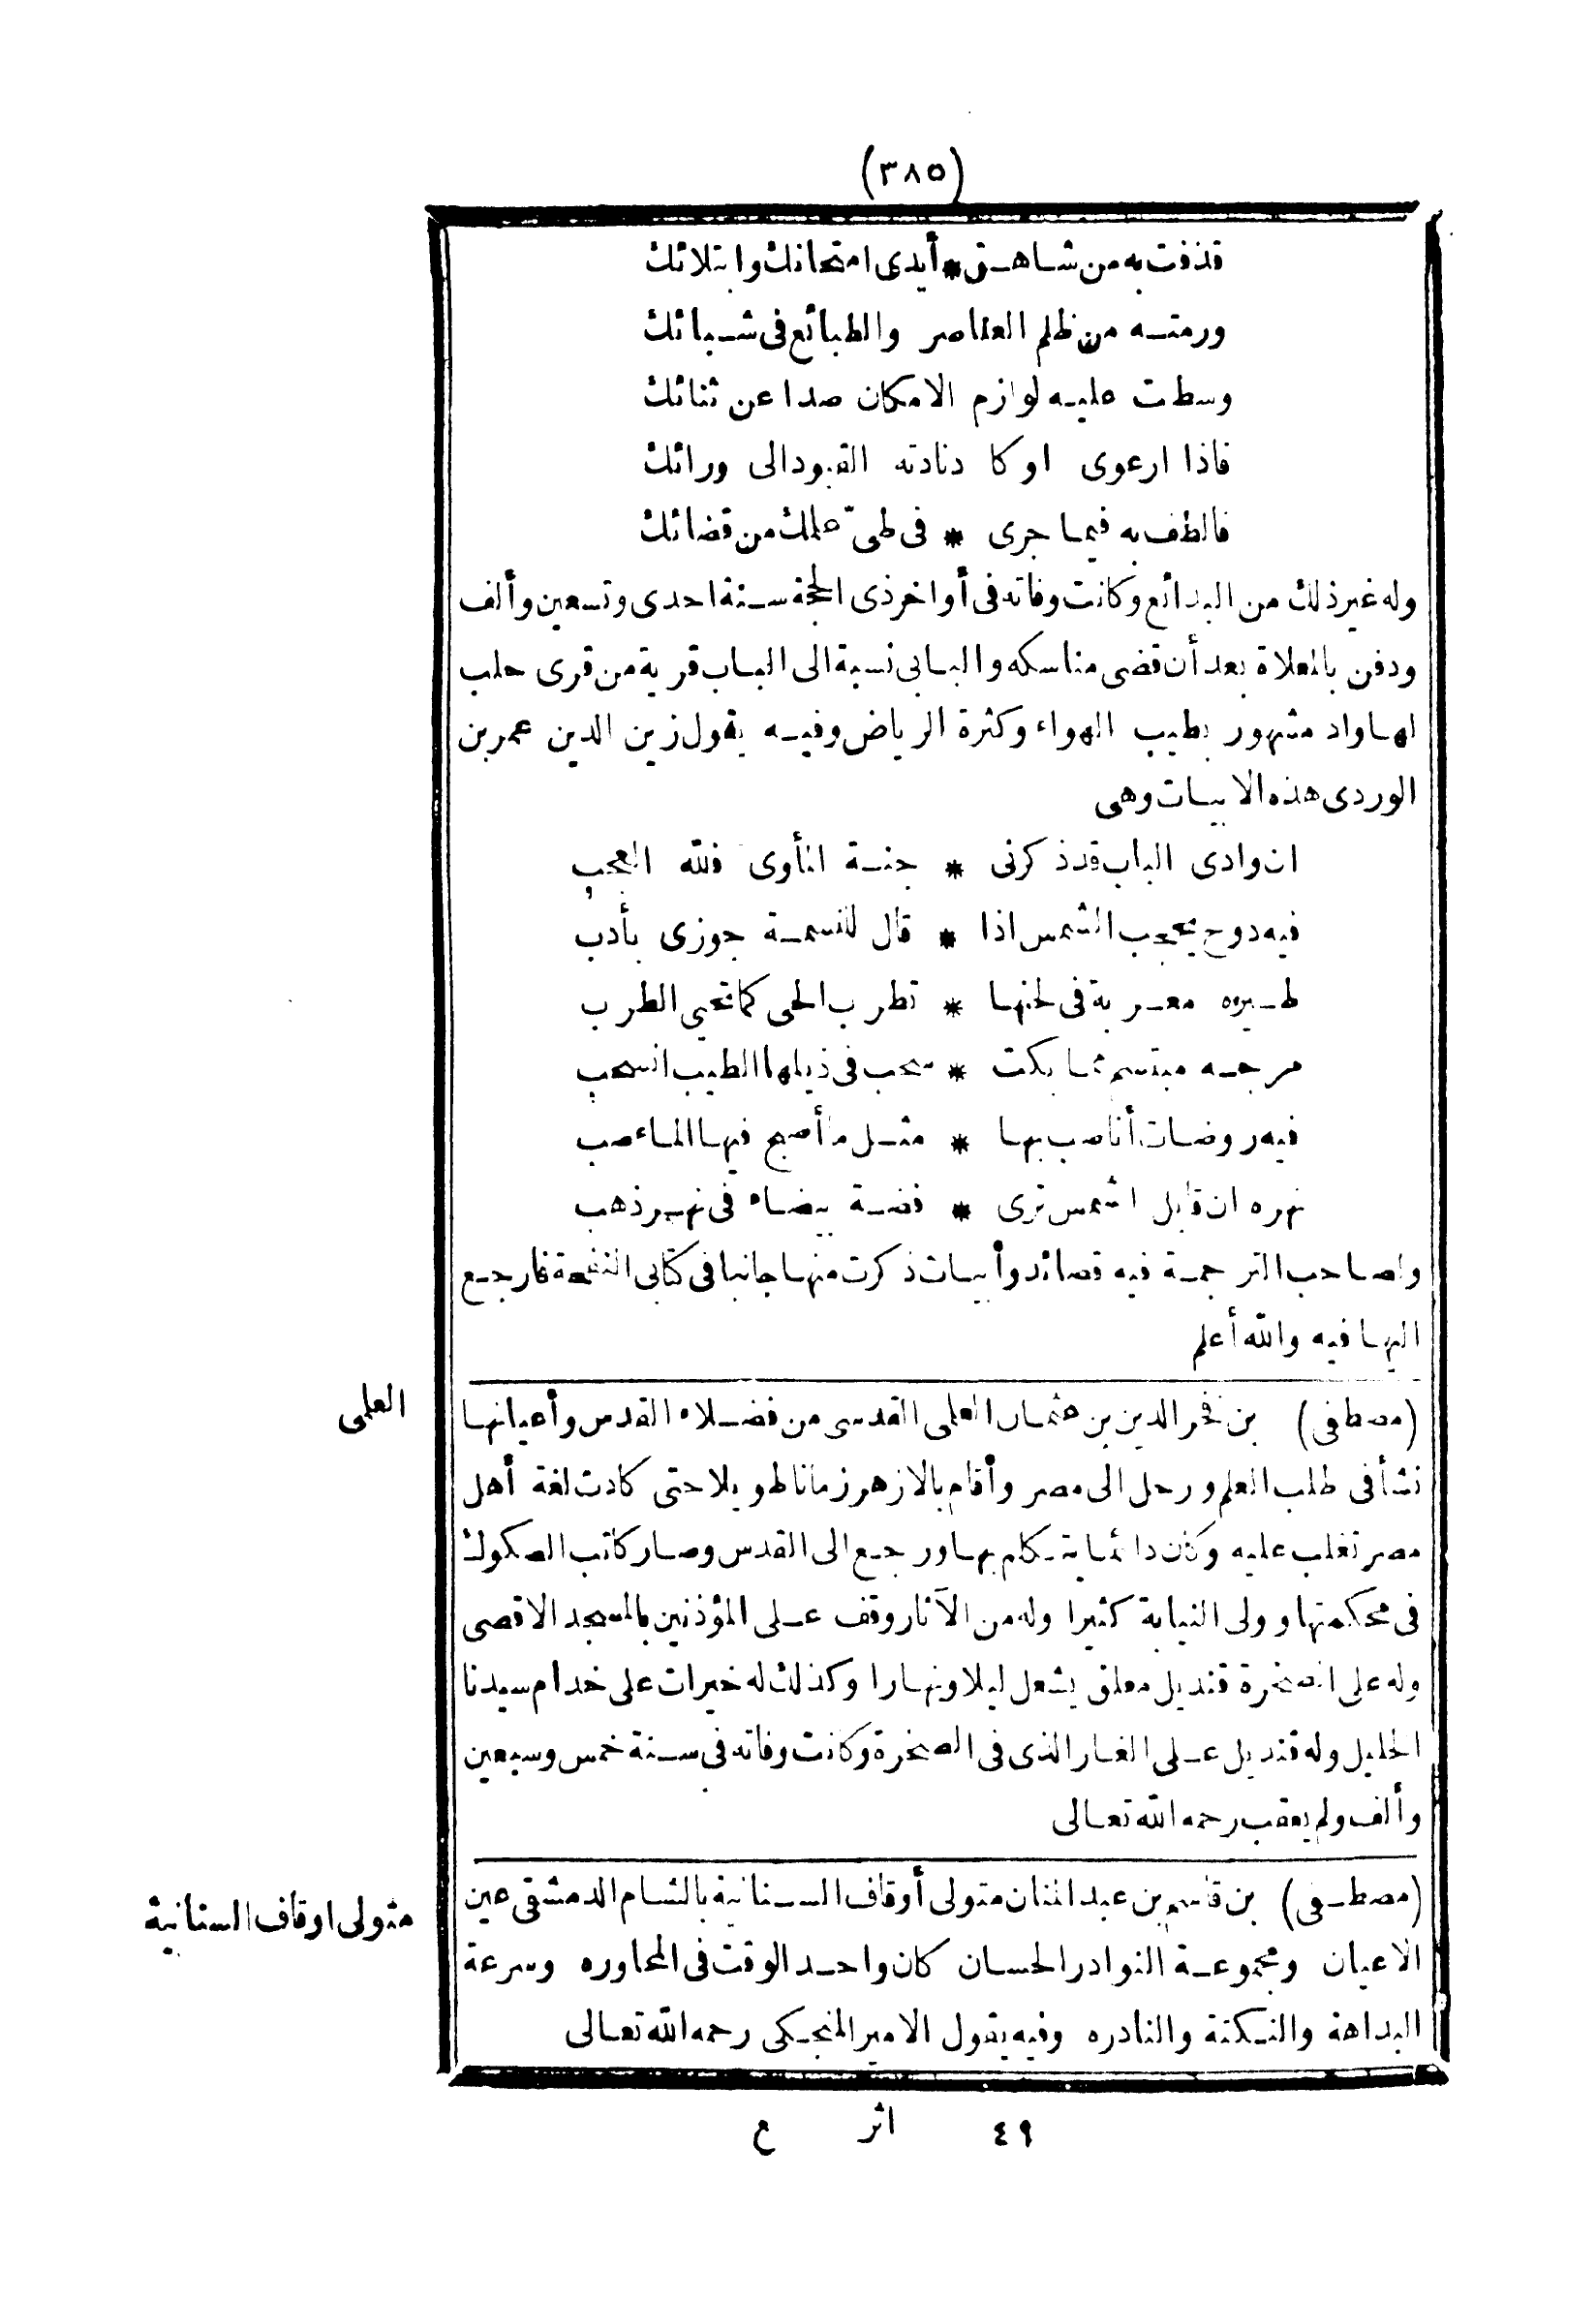 (٣٨٥)
قذفت به من شاهق * أيدى امتحانك وابتلائك
ورمته من ظلم العناصر والطبائع فى شبائك
وسطت عليه لوازم الامكان صدا عن ثنائك
فاذا ارعوى او كا دنادته القيود الى ورائك
فالطف به فيما جرى * فى طىّ علمك من قضائك
وله غير ذلك من البدائع وكانت وفاته فى أواخر ذى الحجة سنة احدى وتسعين وألف
ودفن بالمعلاة بعد أن قضى مناسكه والبابى نسبة الى الباب قرية من قرى حلب
لها واد مشهور بطيب الهواء وكثرة الرياض وفيه يقول زين الدين عمر بن
الوردى هذه الابيات وهى
ان وادى الباب قد ذكرنى * جنة المأوى فلله العجب
فيه دوح يحجب الشمس اذا * قال للنسمة جوزى بأدب
طيره معربة فى لحنها * تطرب الحى كما تحيى الطرب
مرجه مبتسم مما بكت * سحب فى ذيلها الطيب انسحب
فيه روضات أنا صب بها * مثل ما أصبح فيها الماء صب
نهره ان قابل الشمس ترى * فضة بيضاء فى نهر ذهب
ولصاحب الترجمة فيه قصائد وأبيات ذكرت منها جانبا فى كتابى النفحة فارجع
اليها فيه والله أعلم
العلمى
(مصطفى) بن فخر الدين بن عثمان العلمى القدسى من فضلاء القدس وأعيانها
نشأ فى طلب العلم ورحل الى مصر وأقام بالازهر زمانا طويلا حتى كادت لغة أهل
مصر تغلب عليه وكان دائما يتكلم بها ورجع الى القدس وصار كاتب الصكوك
فى محكمتها وولى النيابة كثيرا وله من الآثار وقف على المؤذنين بالمسجد الاقصى
وله على الصخرة قنديل معلق يشعل ليلا ونهارا وكذلك له خيرات على خدام سيدنا
الخليل وله قنديل على الغار الذى فى الصخرة وكانت وفاته فى سنة خمس وسبعين
وألف ولم يعقب رحمه الله تعالى
متولى اوقاف السنانية
(مصطفى) بن قاسم بن عبد المنان متولى أوقاف السنانية بالشام الدمشقى عين
الاعيان ومجموعة النوادر الحسان كان واحد الوقت فى المحاوره وسرعة
البداهة والنكتة والنادره وفيه يقول الامير المنجكى رحمه الله تعالى
٤٩ اثر ع